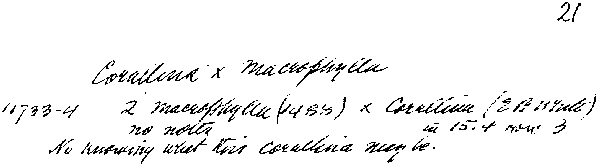 21
Corallina x Macrophylla
11733-4 2 macrophylla (HBS) x Corallina (E A White)
no notes in 15.4 row 3
No knowing what this corallina may be.